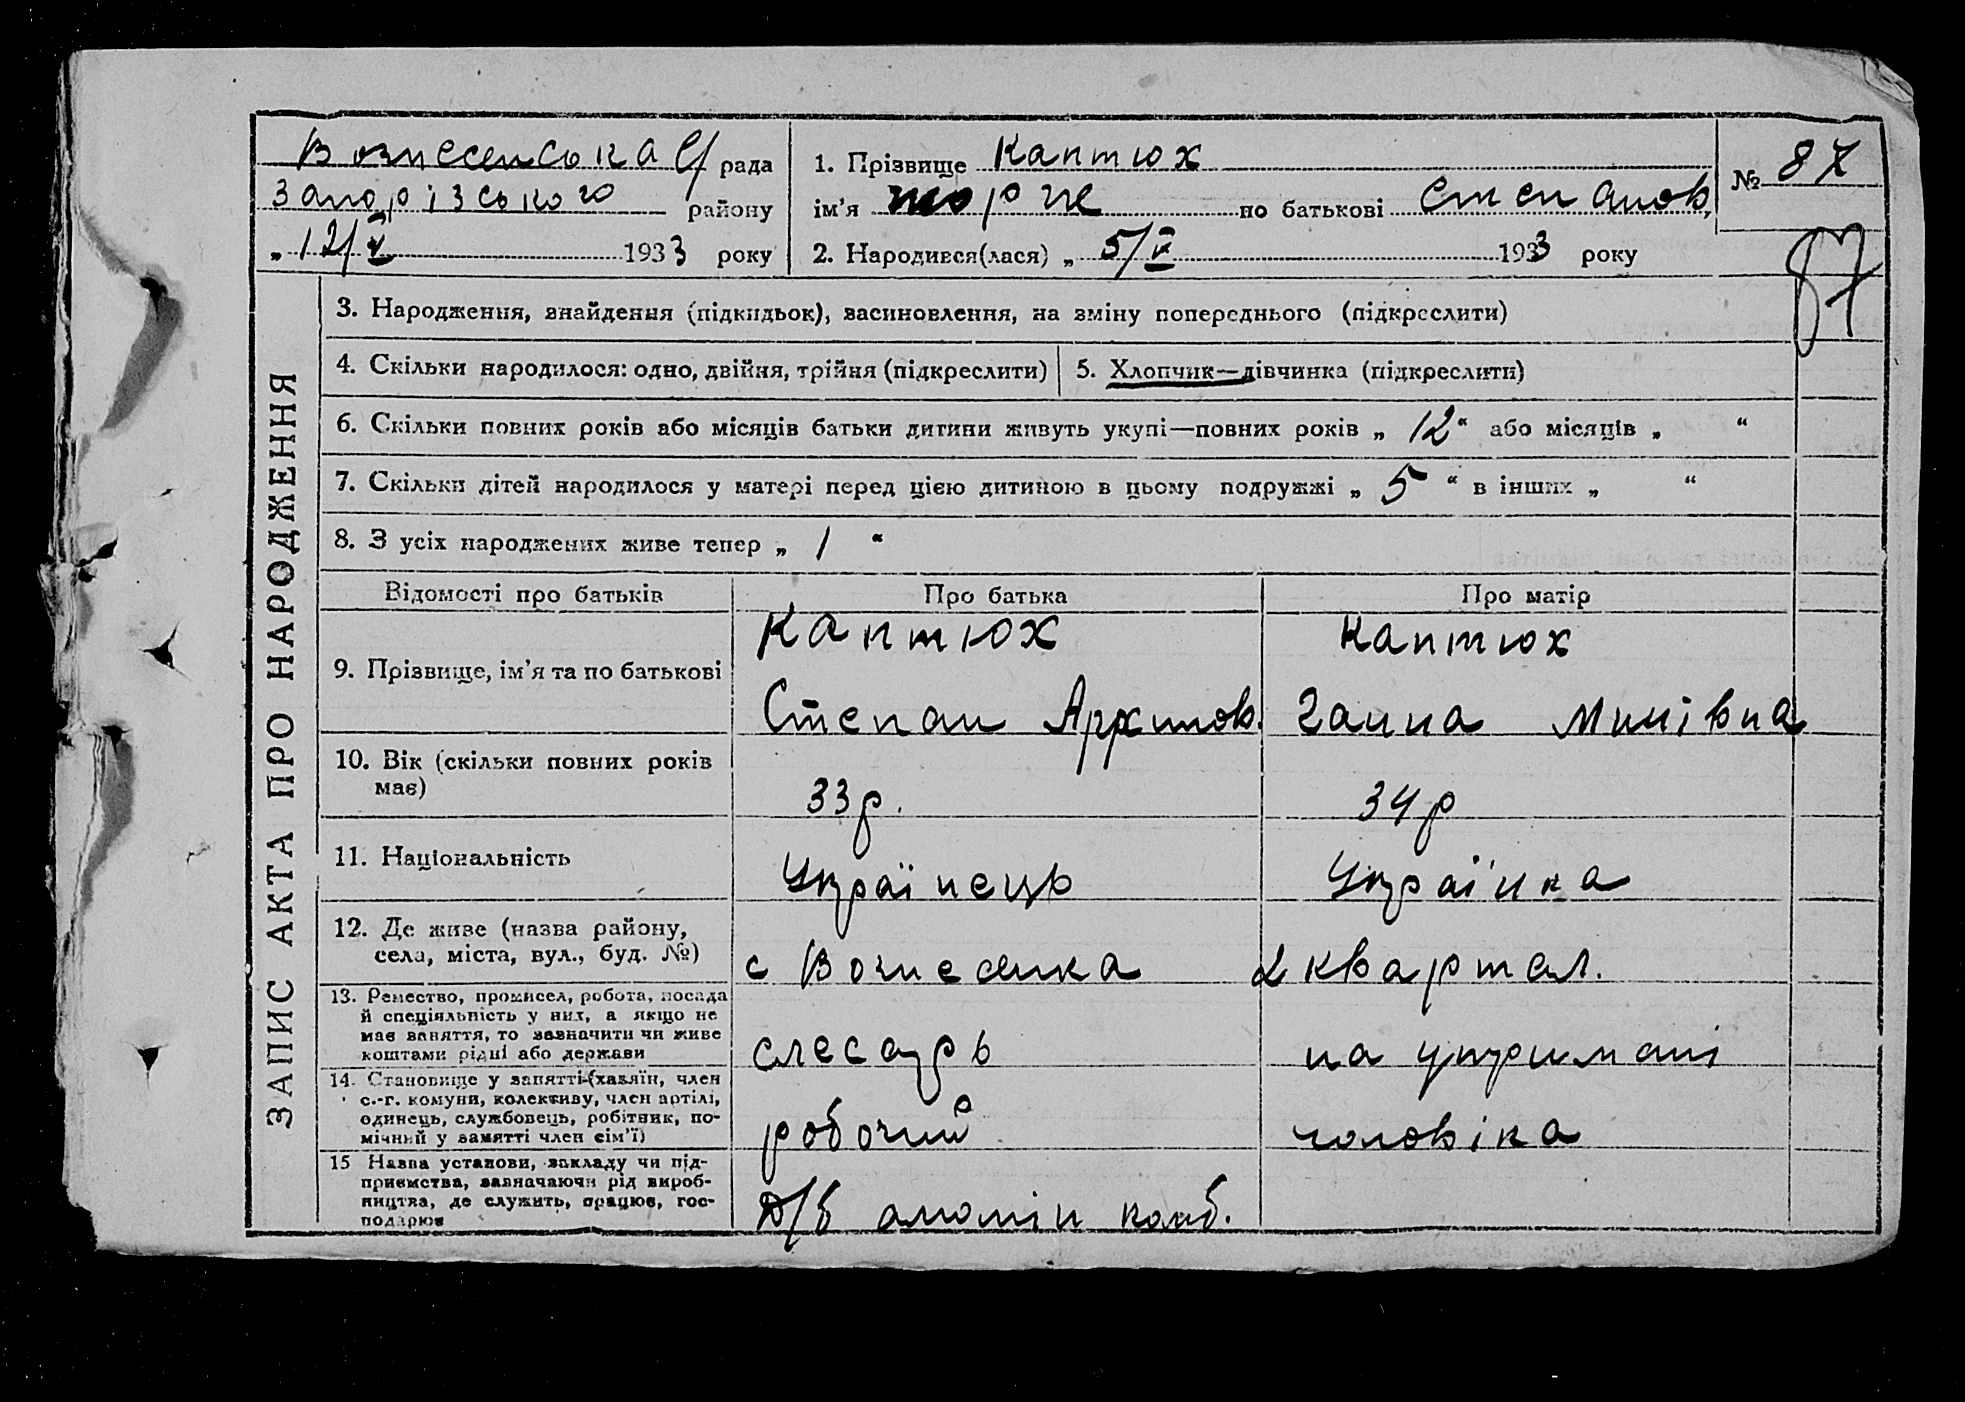 Вознесенська с/ рада
Запорізського району
„ 12/V 1933 року
1. Прізвище Каптюх
ім’я по батькові Степанов.
2. Народився(лася) „ 5/V 1933 року
№ 87
87
ЗАПИС АКТА ПРО НАРОДЖЕННЯ
3. Народження, знайдення (підкидьок), засиновлення, на зміну попереднього (підкреслити)
4. Скільки народилося: одно, двійня, трійня (підкреслити)
5. Хлопчик—дівчинка (підкреслити)
6. Скільки повних років або місяців батьки дитини живуть укупі—повних років „ 12 “ або місяців „ “
7. Скільки дітей народилося у матері перед цією дитиною в цьому подружжі „ 5 “ в інших „ “
8. З усіх народжених живе тепер „ 1 “
Відомості про батьків Про батька Про матір
9. Прізвище, ім’я та по батькові
Каптюх
Степан Архипов.
Каптюх
Ганна Минівна
10. Вік (скільки повних років
має)
33 р.
34 р
11. Національність
Українець
Українка
12. Де живе (назва району,
села, міста, вул., буд. №)
с Вознесенка 2 квартал.
13. Ремество, промисел, робота, посада
й спеціяльність у них, а якщо не
має заняття, то зазначити чи живе
коштами рідні або держави
слесарь
на утримані
14. Становище у занятті (хазяїн, член
с.-г. комуни, колективу, член артілі,
одинець, службовець, робітник, по-
мічний у занятті член сім’ї)
робочий
чоловіка
15 Назва установи, закладу чи під-
приємства, зазначаючи рід вироб-
ництва, де служить, працює, гос-
подарює
Д/б алюмін комб.